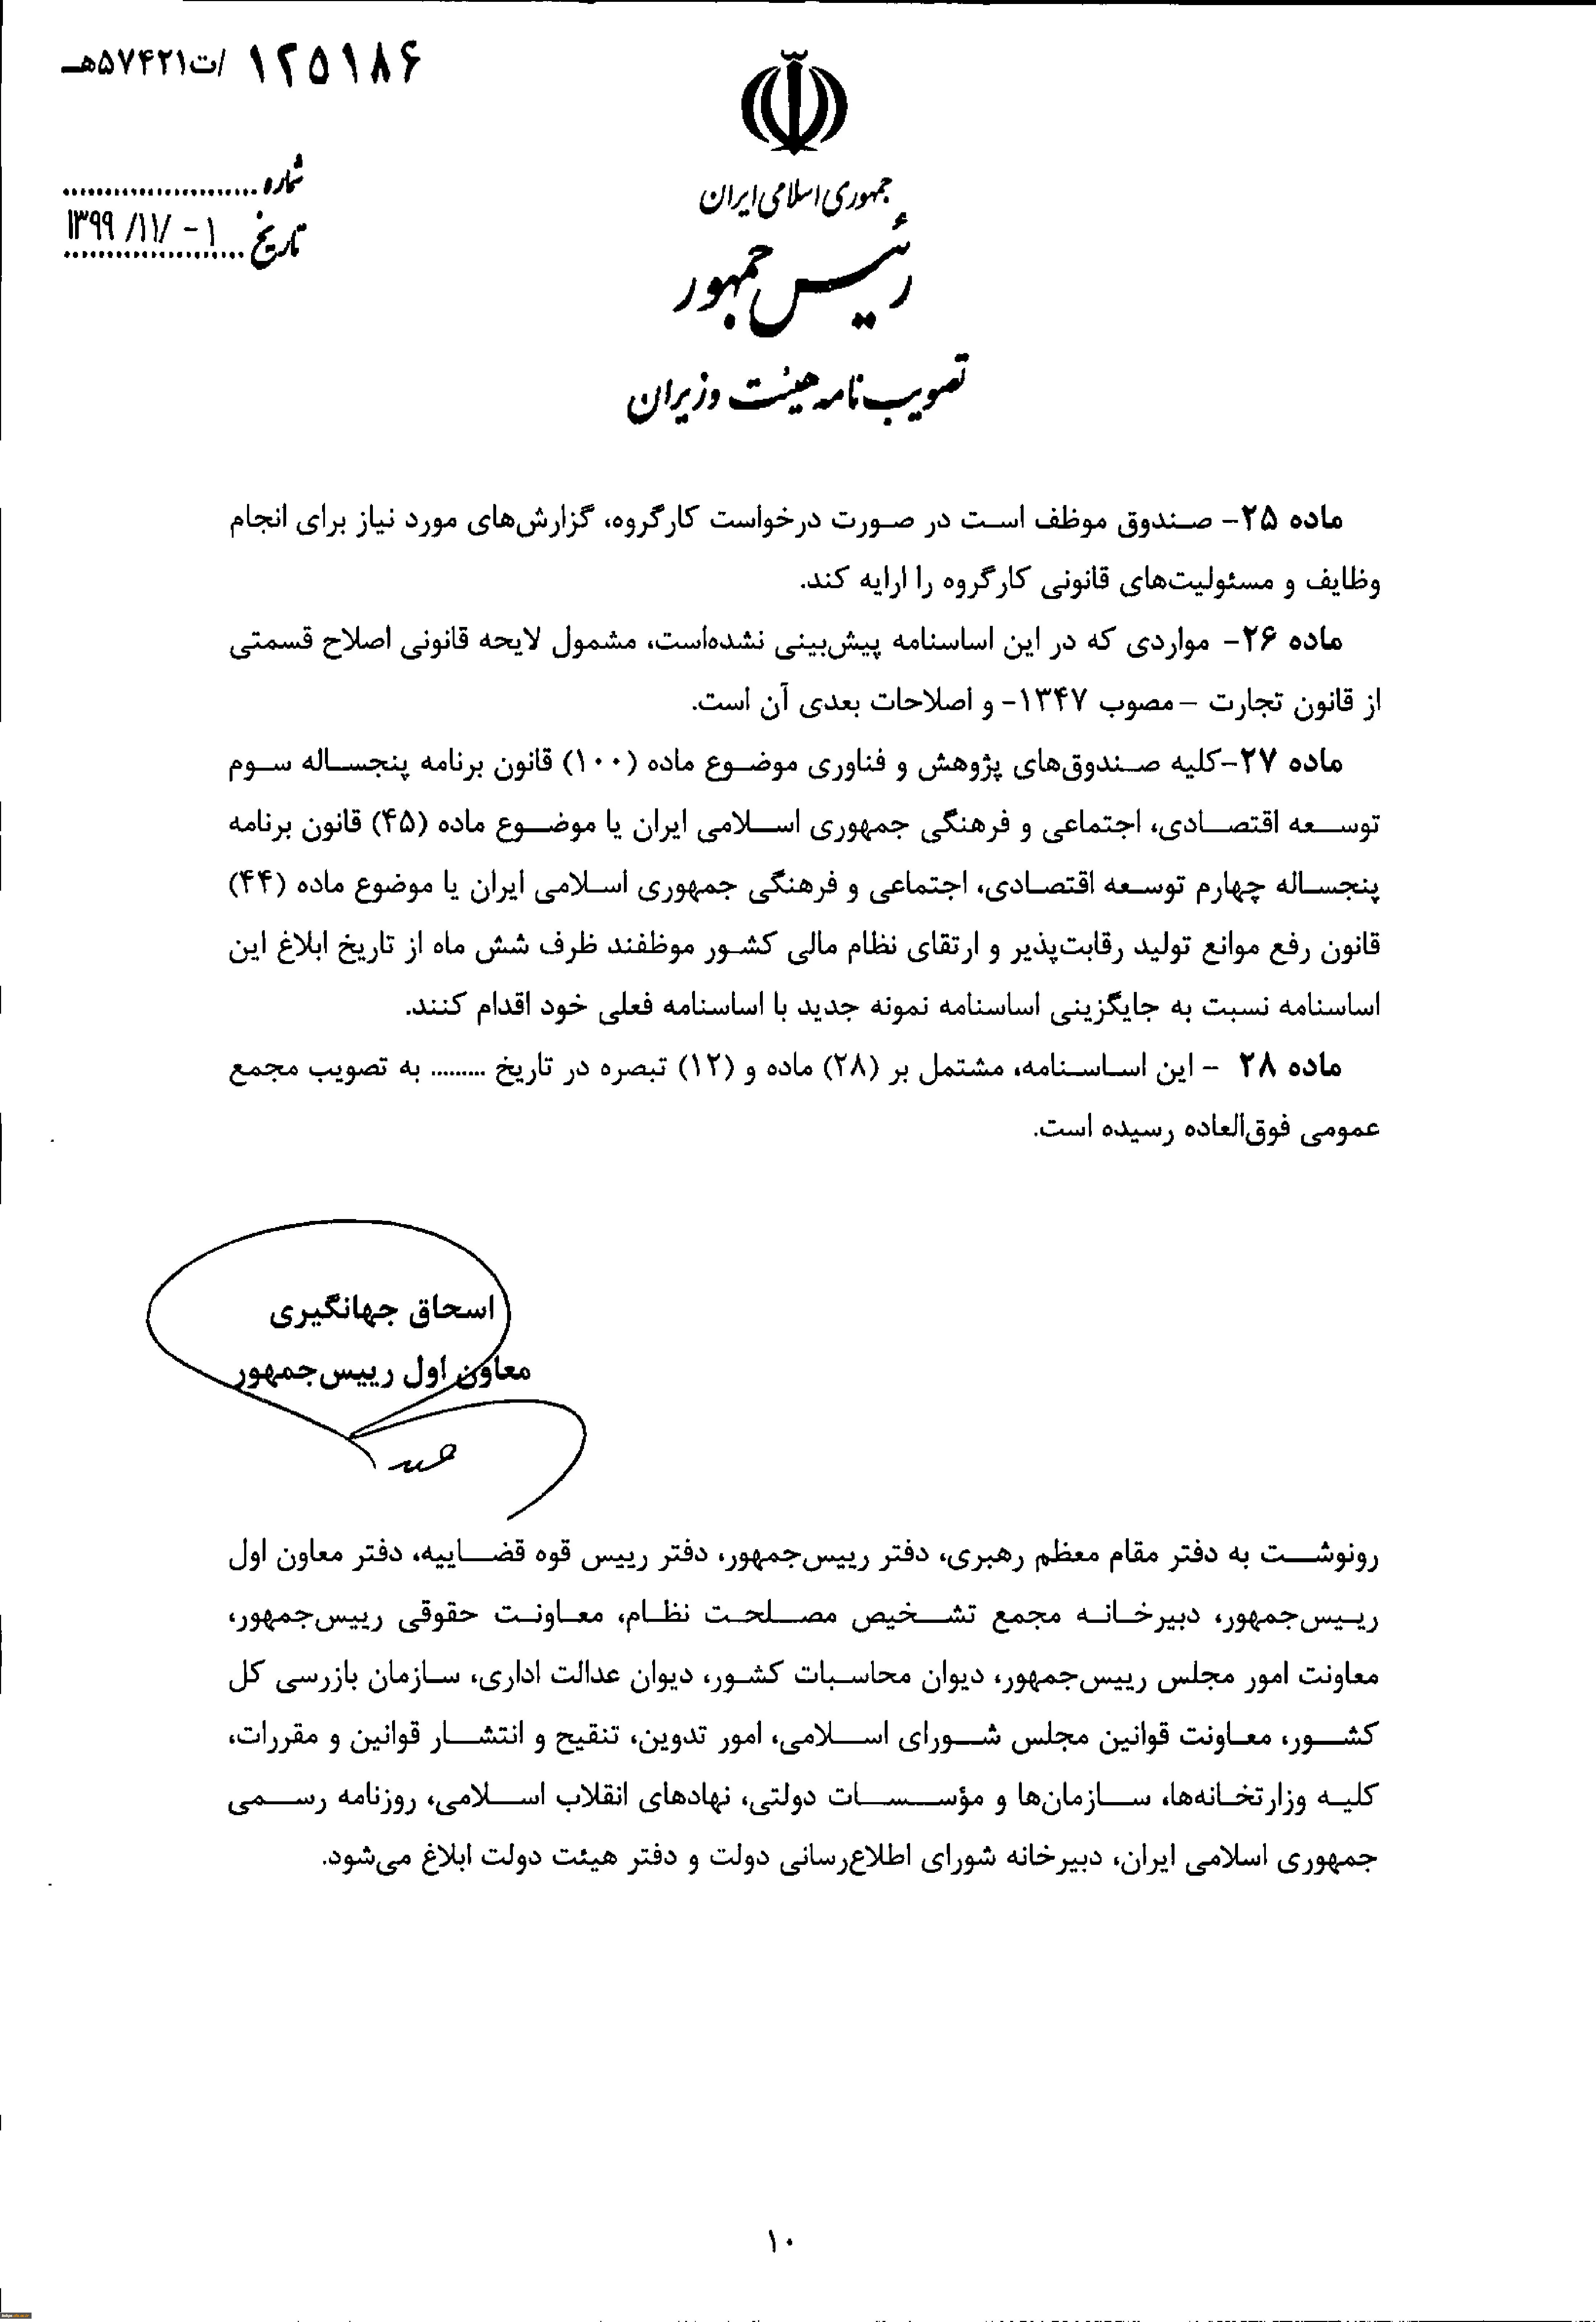 ۱۲۵۱۸۶ /ت۵۷۴۲۱هـ
جمهوری اسلامی ایران
شماره ......................
رئیس جمهور
تاریخ ۱ -/۱۱/ ۱۳۹۹
تصویب نامه هیئت وزیران
ماده ۲۵- صندوق موظف است در صورت درخواست کارگروه، گزارش‌های مورد نیاز برای انجام
وظایف و مسئولیت‌های قانونی کارگروه را ارایه کند.
ماده ۲۶- مواردی که در این اساسنامه پیش‌بینی نشده‌است، مشمول لایحه قانونی اصلاح قسمتی
از قانون تجارت – مصوب ۱۳۴۷- و اصلاحات بعدی آن است.
ماده ۲۷-کلیه صندوق‌های پژوهش و فناوری موضوع ماده (۱۰۰) قانون برنامه پنجساله سوم
توسعه اقتصادی، اجتماعی و فرهنگی جمهوری اسلامی ایران یا موضوع ماده (۴۵) قانون برنامه
پنجساله چهارم توسعه اقتصادی، اجتماعی و فرهنگی جمهوری اسلامی ایران یا موضوع ماده (۴۴)
قانون رفع موانع تولید رقابت‌پذیر و ارتقای نظام مالی کشور موظفند ظرف شش ماه از تاریخ ابلاغ این
اساسنامه نسبت به جایگزینی اساسنامه نمونه جدید با اساسنامه فعلی خود اقدام کنند.
ماده ۲۸ - این اساسنامه، مشتمل بر (۲۸) ماده و (۱۲) تبصره در تاریخ ......... به تصویب مجمع
عمومی فوق‌العاده رسیده است.
اسحاق جهانگیری
معاون اول رییس‌جمهور
رونوشت به دفتر مقام معظم رهبری، دفتر رییس‌جمهور، دفتر رییس قوه قضاییه، دفتر معاون اول
رییس‌جمهور، دبیرخانه مجمع تشخیص مصلحت نظام، معاونت حقوقی رییس‌جمهور،
معاونت امور مجلس رییس‌جمهور، دیوان محاسبات کشور، دیوان عدالت اداری، سازمان بازرسی کل
کشور، معاونت قوانین مجلس شورای اسلامی، امور تدوین، تنقیح و انتشار قوانین و مقررات،
کلیه وزارتخانه‌ها، سازمان‌ها و مؤسسات دولتی، نهادهای انقلاب اسلامی، روزنامه رسمی
جمهوری اسلامی ایران، دبیرخانه شورای اطلاع‌رسانی دولت و دفتر هیئت دولت ابلاغ می‌شود.
۱۰